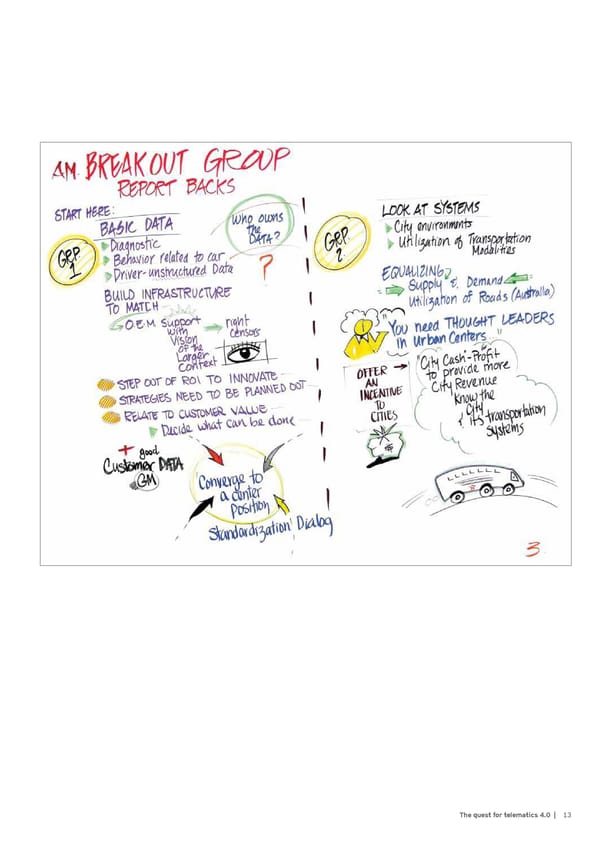 A.M. BREAKOUT GROUP
REPORT BACKS
START HERE:
GRP. 1
BASIC DATA
Diagnostic
Behavior related to car
Driver-unstructured Data
Who owns
the
DATA?
?
BUILD INFRASTRUCTURE
TO MATCH
O.E.M. Support
with
Vision
of the
Larger
Context
right
Censors
STEP OUT OF ROI TO INNOVATE
STRATEGIES NEED TO BE PLANNED OUT
RELATE TO CUSTOMER VALUE
Decide what can be done
+ good
Customer DATA
GM
Converge to
a center
position
Standardization Dialog
GRP. 2
LOOK AT SYSTEMS
City environments
Utilization of Transportation
Modalities
EQUALIZING
Supply & Demand
Utilization of Roads (Australia)
"You need THOUGHT LEADERS
in Urban Centers"
OFFER
AN
INCENTIVE
TO
CITIES
"City Cash-Profit"
to provide more
City Revenue
Know the
City
& its transportation
Systems
3
The quest for telematics 4.0 | 13